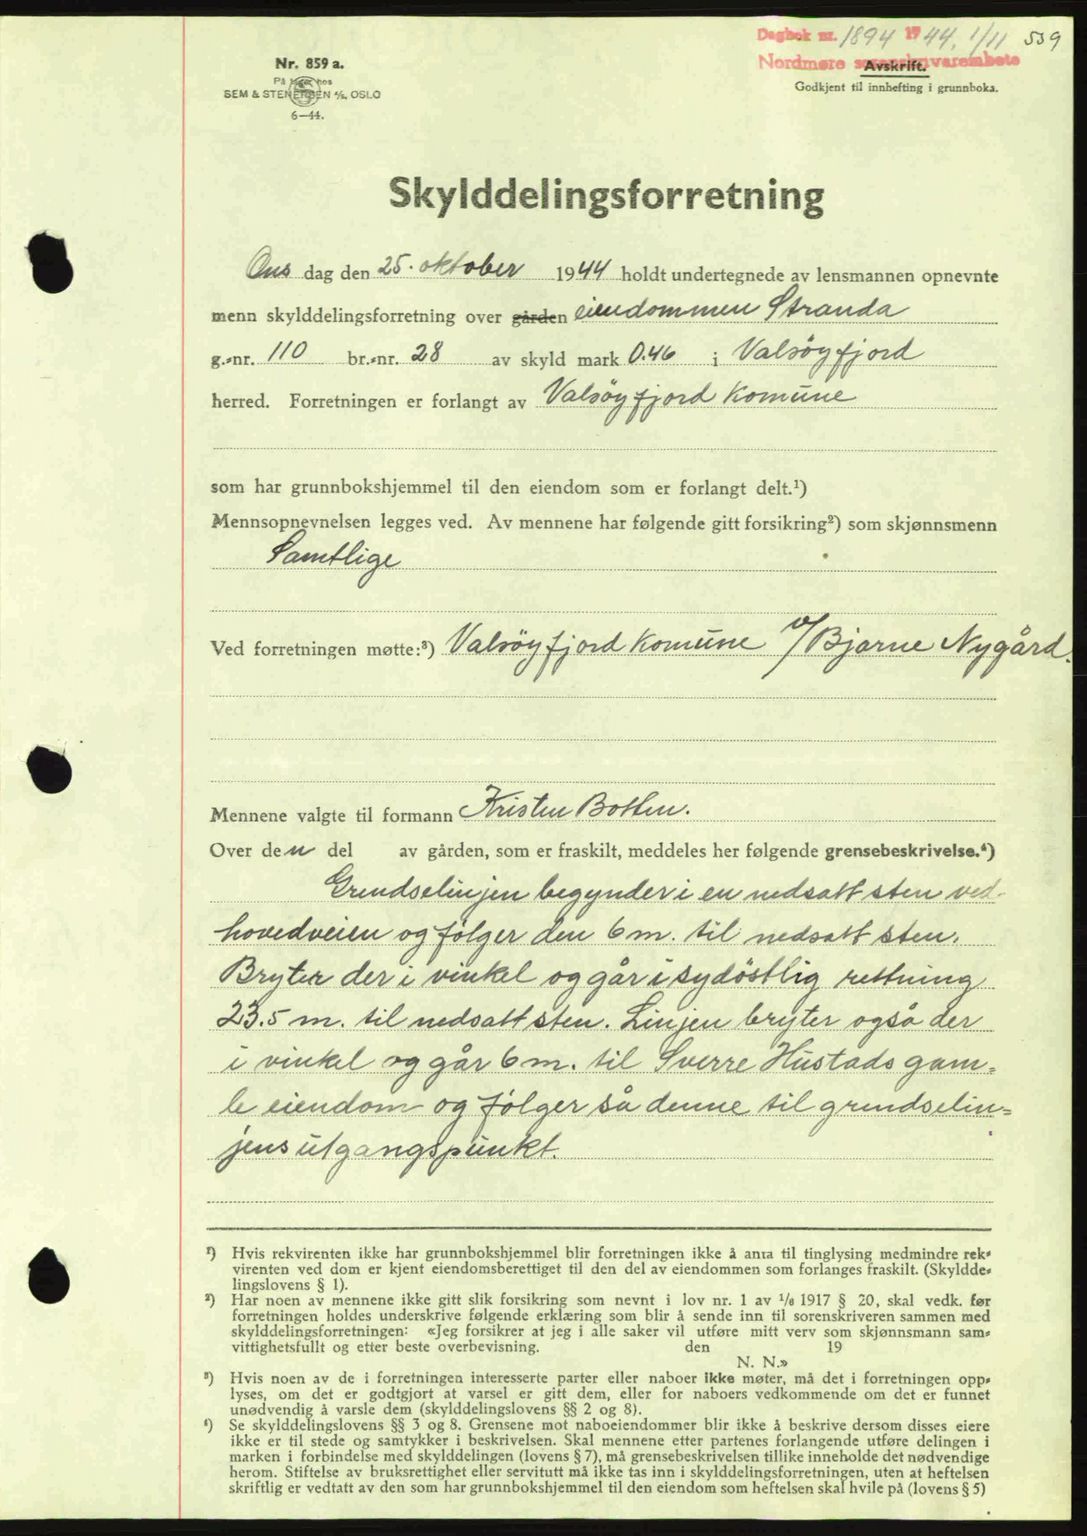 Dagbok nr. 1894 1944, 1/11 539
Nordmøre sorenskriverembete
Avskrift.
Godkjent til innhefting i grunnboka.
Nr. 859 a.
På lager hos
SEM & STENERSEN A/S, OSLO
6—44.
Skylddelingsforretning
Ons dag den 25. oktober 1944 holdt undertegnede av lensmannen opnevnte
menn skylddelingsforretning over gården eiendommen Stranda
g.-nr. 110 br.-nr. 28 av skyld mark 0.46 i Valsøyfjord
herred. Forretningen er forlangt av Valsøyfjord Komune
som har grunnbokshjemmel til den eiendom som er forlangt delt.¹)
Mennsopnevnelsen legges ved. Av mennene har følgende gitt forsikring²) som skjønnsmenn
Samtlige
Ved forretningen møtte:³) Valsøyfjord Komune v/Bjarne Nygård.
Mennene valgte til formann Kristen Botten.
Over den del av gården, som er fraskilt, meddeles her følgende grensebeskrivelse.⁴)
Grendselinjen begynder i en nedsatt sten ved
hovedveien og følger den 6 m. til nedsatt sten.
Bryter der i vinkel og går i sydöstlig rettning
23.5 m. til nedsatt sten. Linjen bryter også der
i vinkel og går 6 m. til Sverre Hustads gam=
le eiendom og følger så denne til grendselin=
jens utgangspunkt.
¹) Hvis rekvirenten ikke har grunnbokshjemmel blir forretningen ikke å anta til tinglysing medmindre rek-
virenten ved dom er kjent eiendomsberettiget til den del av eiendommen som forlanges fraskilt. (Skyldde-
lingslovens § 1).
²) Har noen av mennene ikke gitt slik forsikring som nevnt i lov nr. 1 av 1/6 1917 § 20, skal vedk. før
forretningen holdes underskrive følgende erklæring som blir å sende inn til sorenskriveren sammen med
skylddelingsforretningen: «Jeg forsikrer at jeg i alle saker vil utføre mitt verv som skjønnsmann sam-
vittighetsfullt og etter beste overbevisning. den 19
N. N.»
³) Hvis noen av de i forretningen interesserte parter eller naboer ikke møter, må det i forretningen opp-
lyses, om det er godtgjort at varsel er gitt dem, eller for naboers vedkommende om det er funnet
unødvendig å varsle dem (skylddelingslovens §§ 2 og 8).
⁴) Se skylddelingslovens §§ 3 og 8. Grensene mot naboeiendommer blir ikke å beskrive dersom disses eiere
ikke er til stede og samtykker i beskrivelsen. Skal mennene etter partenes forlangende utføre delingen i
marken i forbindelse med skylddelingen (lovens § 7), må grensebeskrivelsen tillike inneholde det nødvendige
herom. Stiftelse av bruksrettighet eller servitutt må ikke tas inn i skylddelingsforretningen, uten at heftelsen
skriftlig er vedtatt av den som har grunnbokshjemmel til den eiendom som heftelsen skal hvile på (lovens § 5)